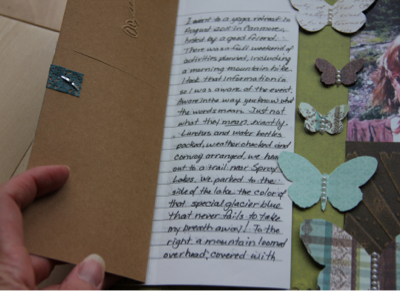 I went to a yoga retreat in
August went in Canmore,
hosted by a good friend.
There was a full weekend of
activities planned, including
a morning mountain hike.
I took that information in
so I was aware of the event.
Aware in the way you know what
the words mean. Just not
what they mean exactly.
Lunches and water bottles
packed, weather checked and
convoy arranged, we head
out to a trail near Spray
Lakes. We parked to the
side of the lake, the color of
that special glacier blue
that never fails to take
my breath away! To the
right a mountain loomed
overhead, covered with